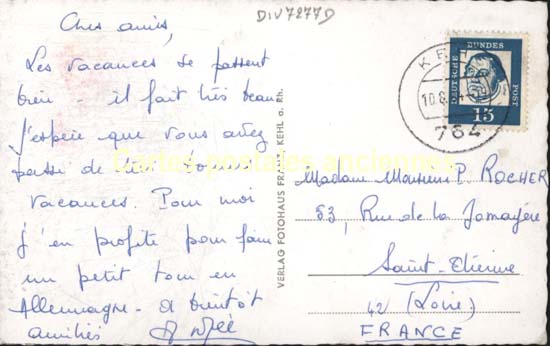 DIV7277D
Chers amis,
Les vacances se passent
bien - il fait très beau
J'espère que vous avez
passé de très bonnes
vacances. Pour moi
j'en profite pour faire
un petit tour en
Allemagne - A bientôt
amitiés
Cartes postales anciennes
VERLAG FOTOHAUS KEHL a. Rh.
KEHL
10.8.
764
DEUTSCHE BUNDESPOST
15
Madame Monsieur P. ROCHER
53, Rue de la Jomayère
Saint-Etienne
42 (Loire)
FRANCE